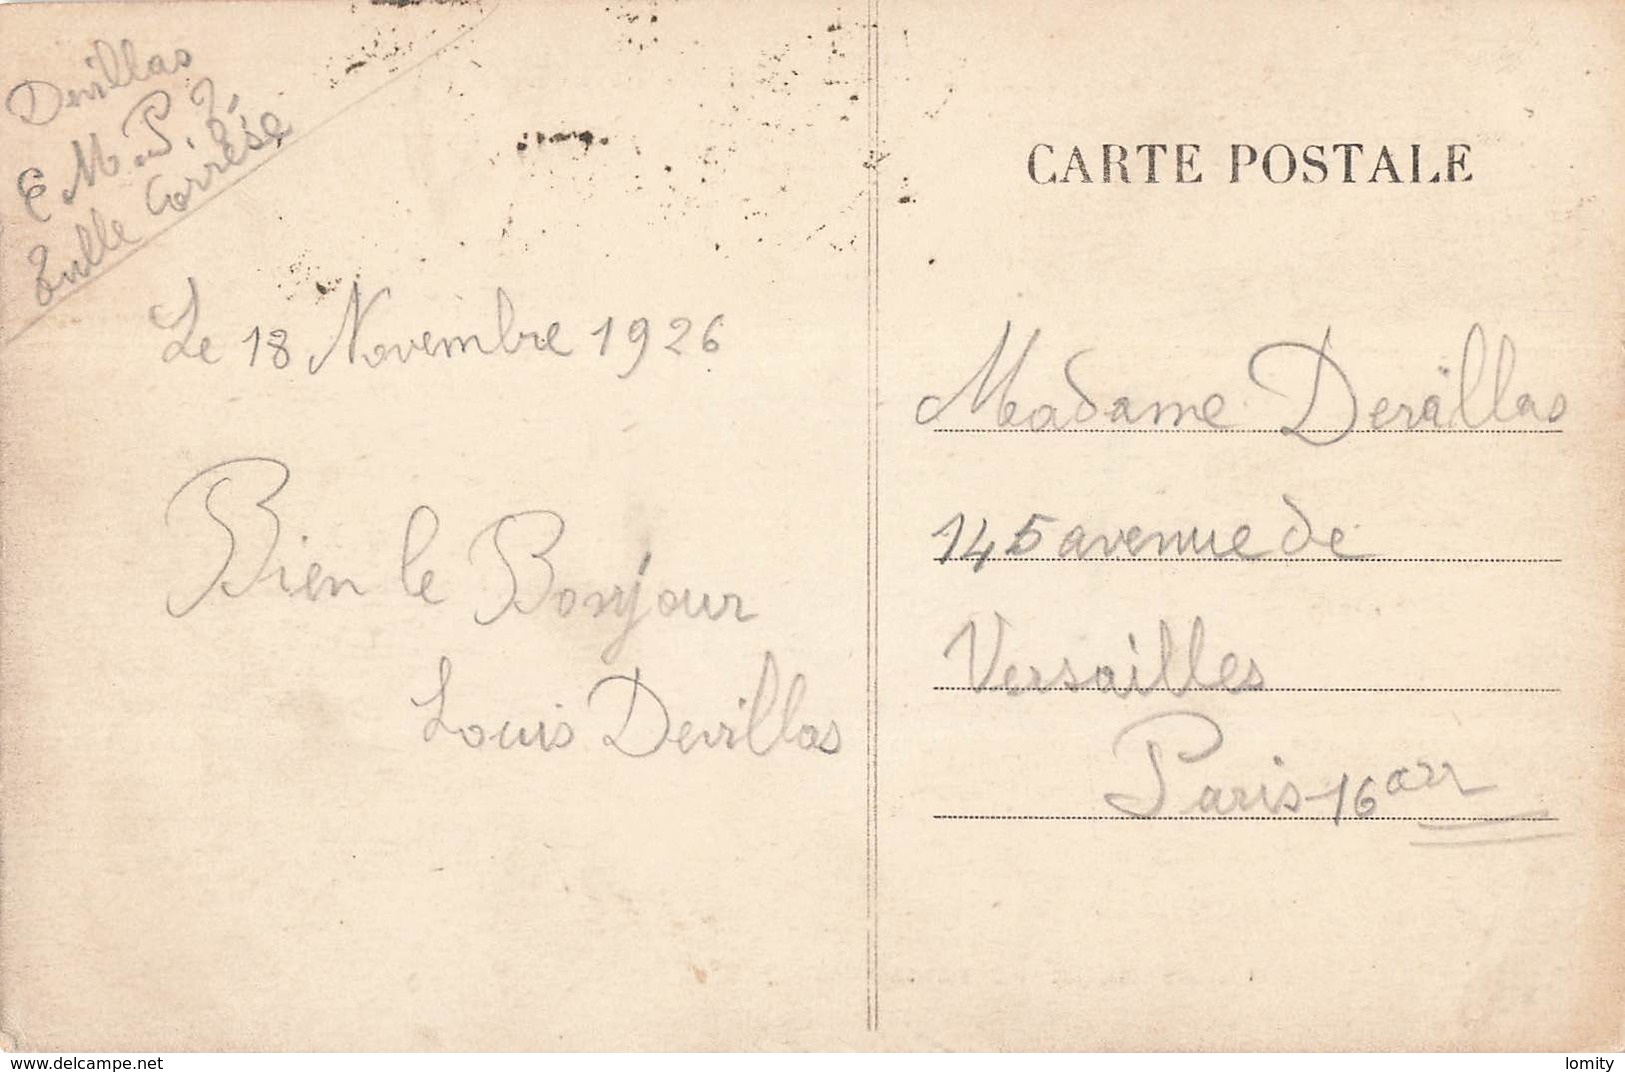 Devillas
E M. P. 2,
Tulle Corrèse
Le 18 Novembre 1926
Bien le Bonjour
Louis Devillas
CARTE POSTALE
Madame Devillas
145 avenue de
Versailles
Paris-16 arr
delcampe.net
lomity